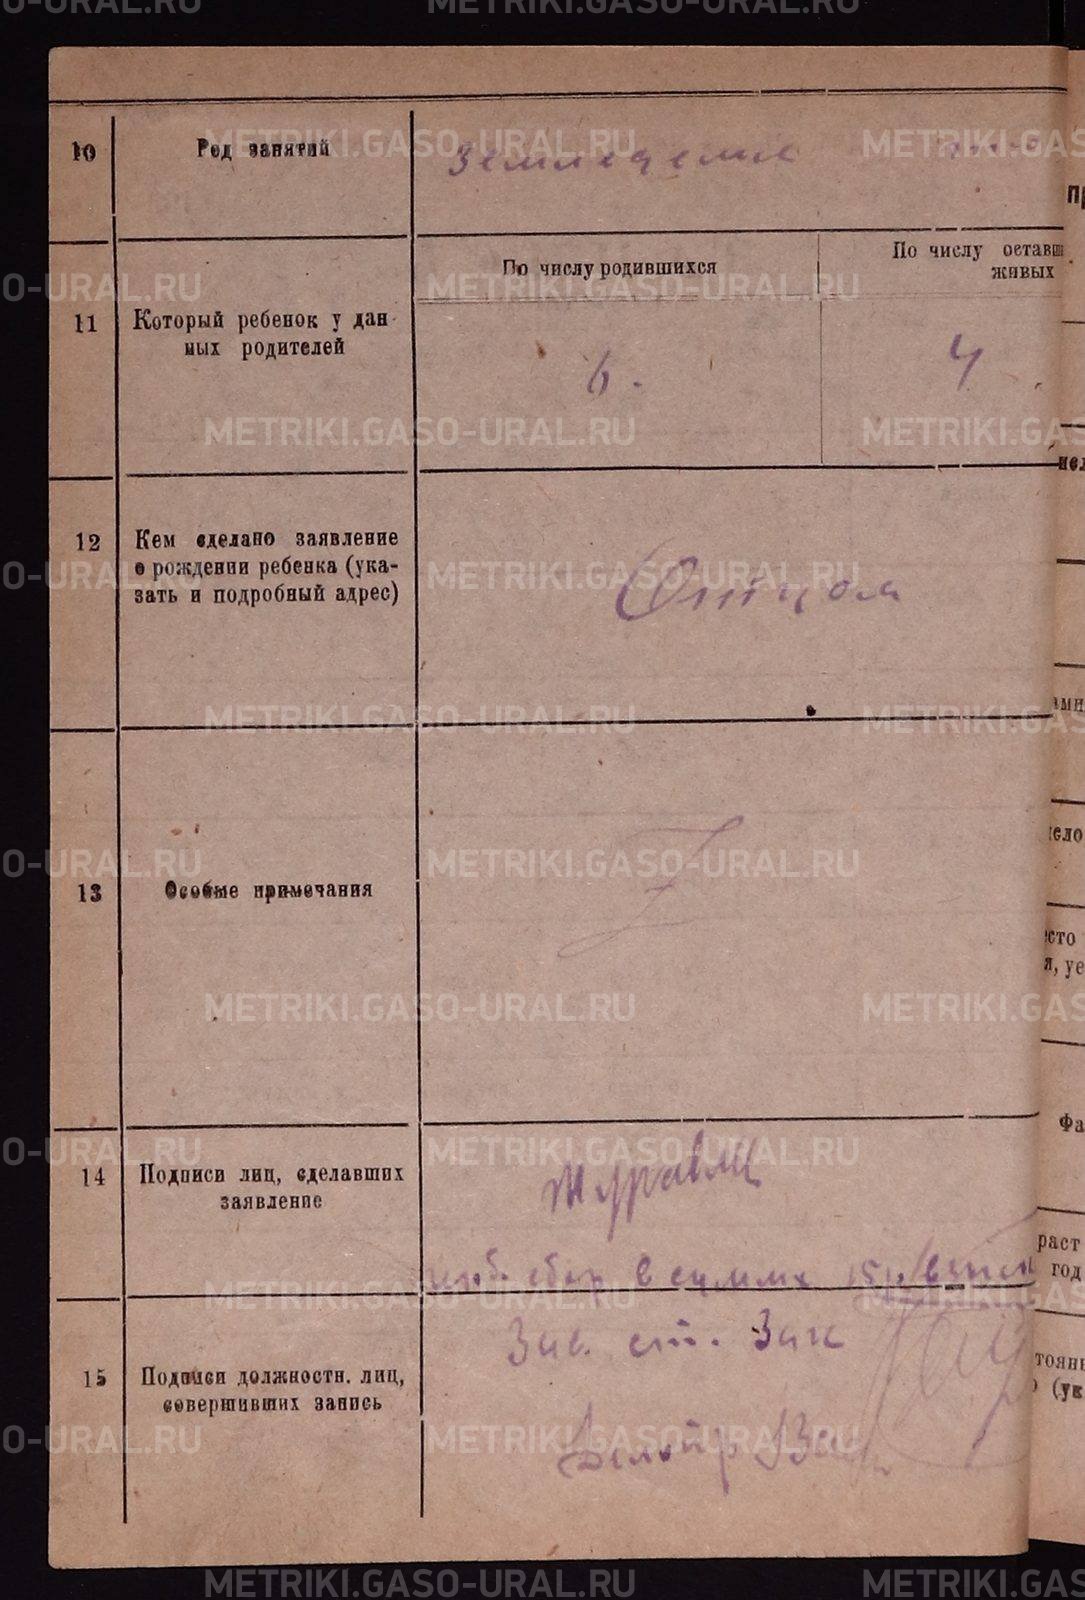 10 Род занятий Земледелие
11 Который ребенок у дан-
ных родителей
По числу родившихся
По числу оставш
живых
6. 4
12 Кем сделано заявление
о рождении ребенка (ука-
зать и подробный адрес)
Отцом
13 Особые примечания
14 Подписи лиц, сделавших
заявление
сбор в сумме 15
Зав. ст. Заг
15 Подписи должностн. лиц,
совершивших запись
Делопр
пр
ами
есто
я, уе
Фа
раст
год
(ук
METRIKI.GASO-URAL.RU